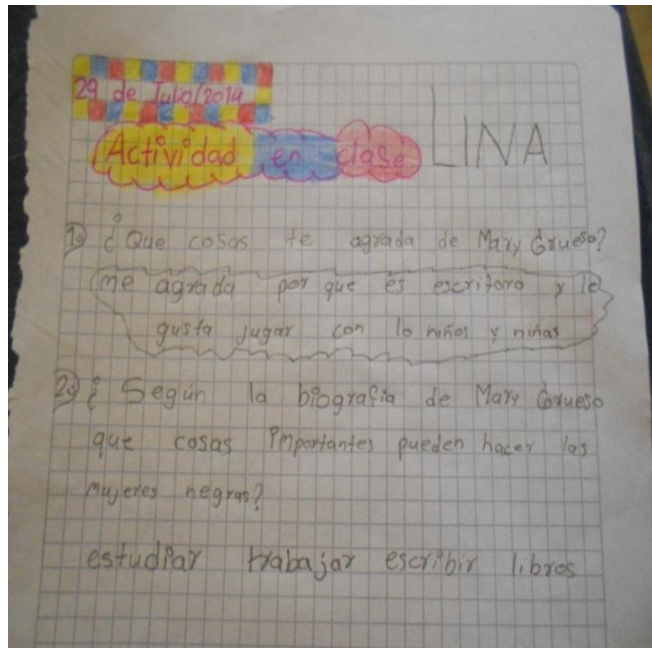 29 de Julio/2019
Actividad en clase
LINA
1) ¿Que cosas te agrada de Mary Grueso?
me agrada por que es escritora y le
gusta jugar con lo niños y niñas
2) ¿Según la biografia de Mary Grueso
que cosas importantes pueden hacer las
mujeres negras?
estudiar trabajar escribir libros